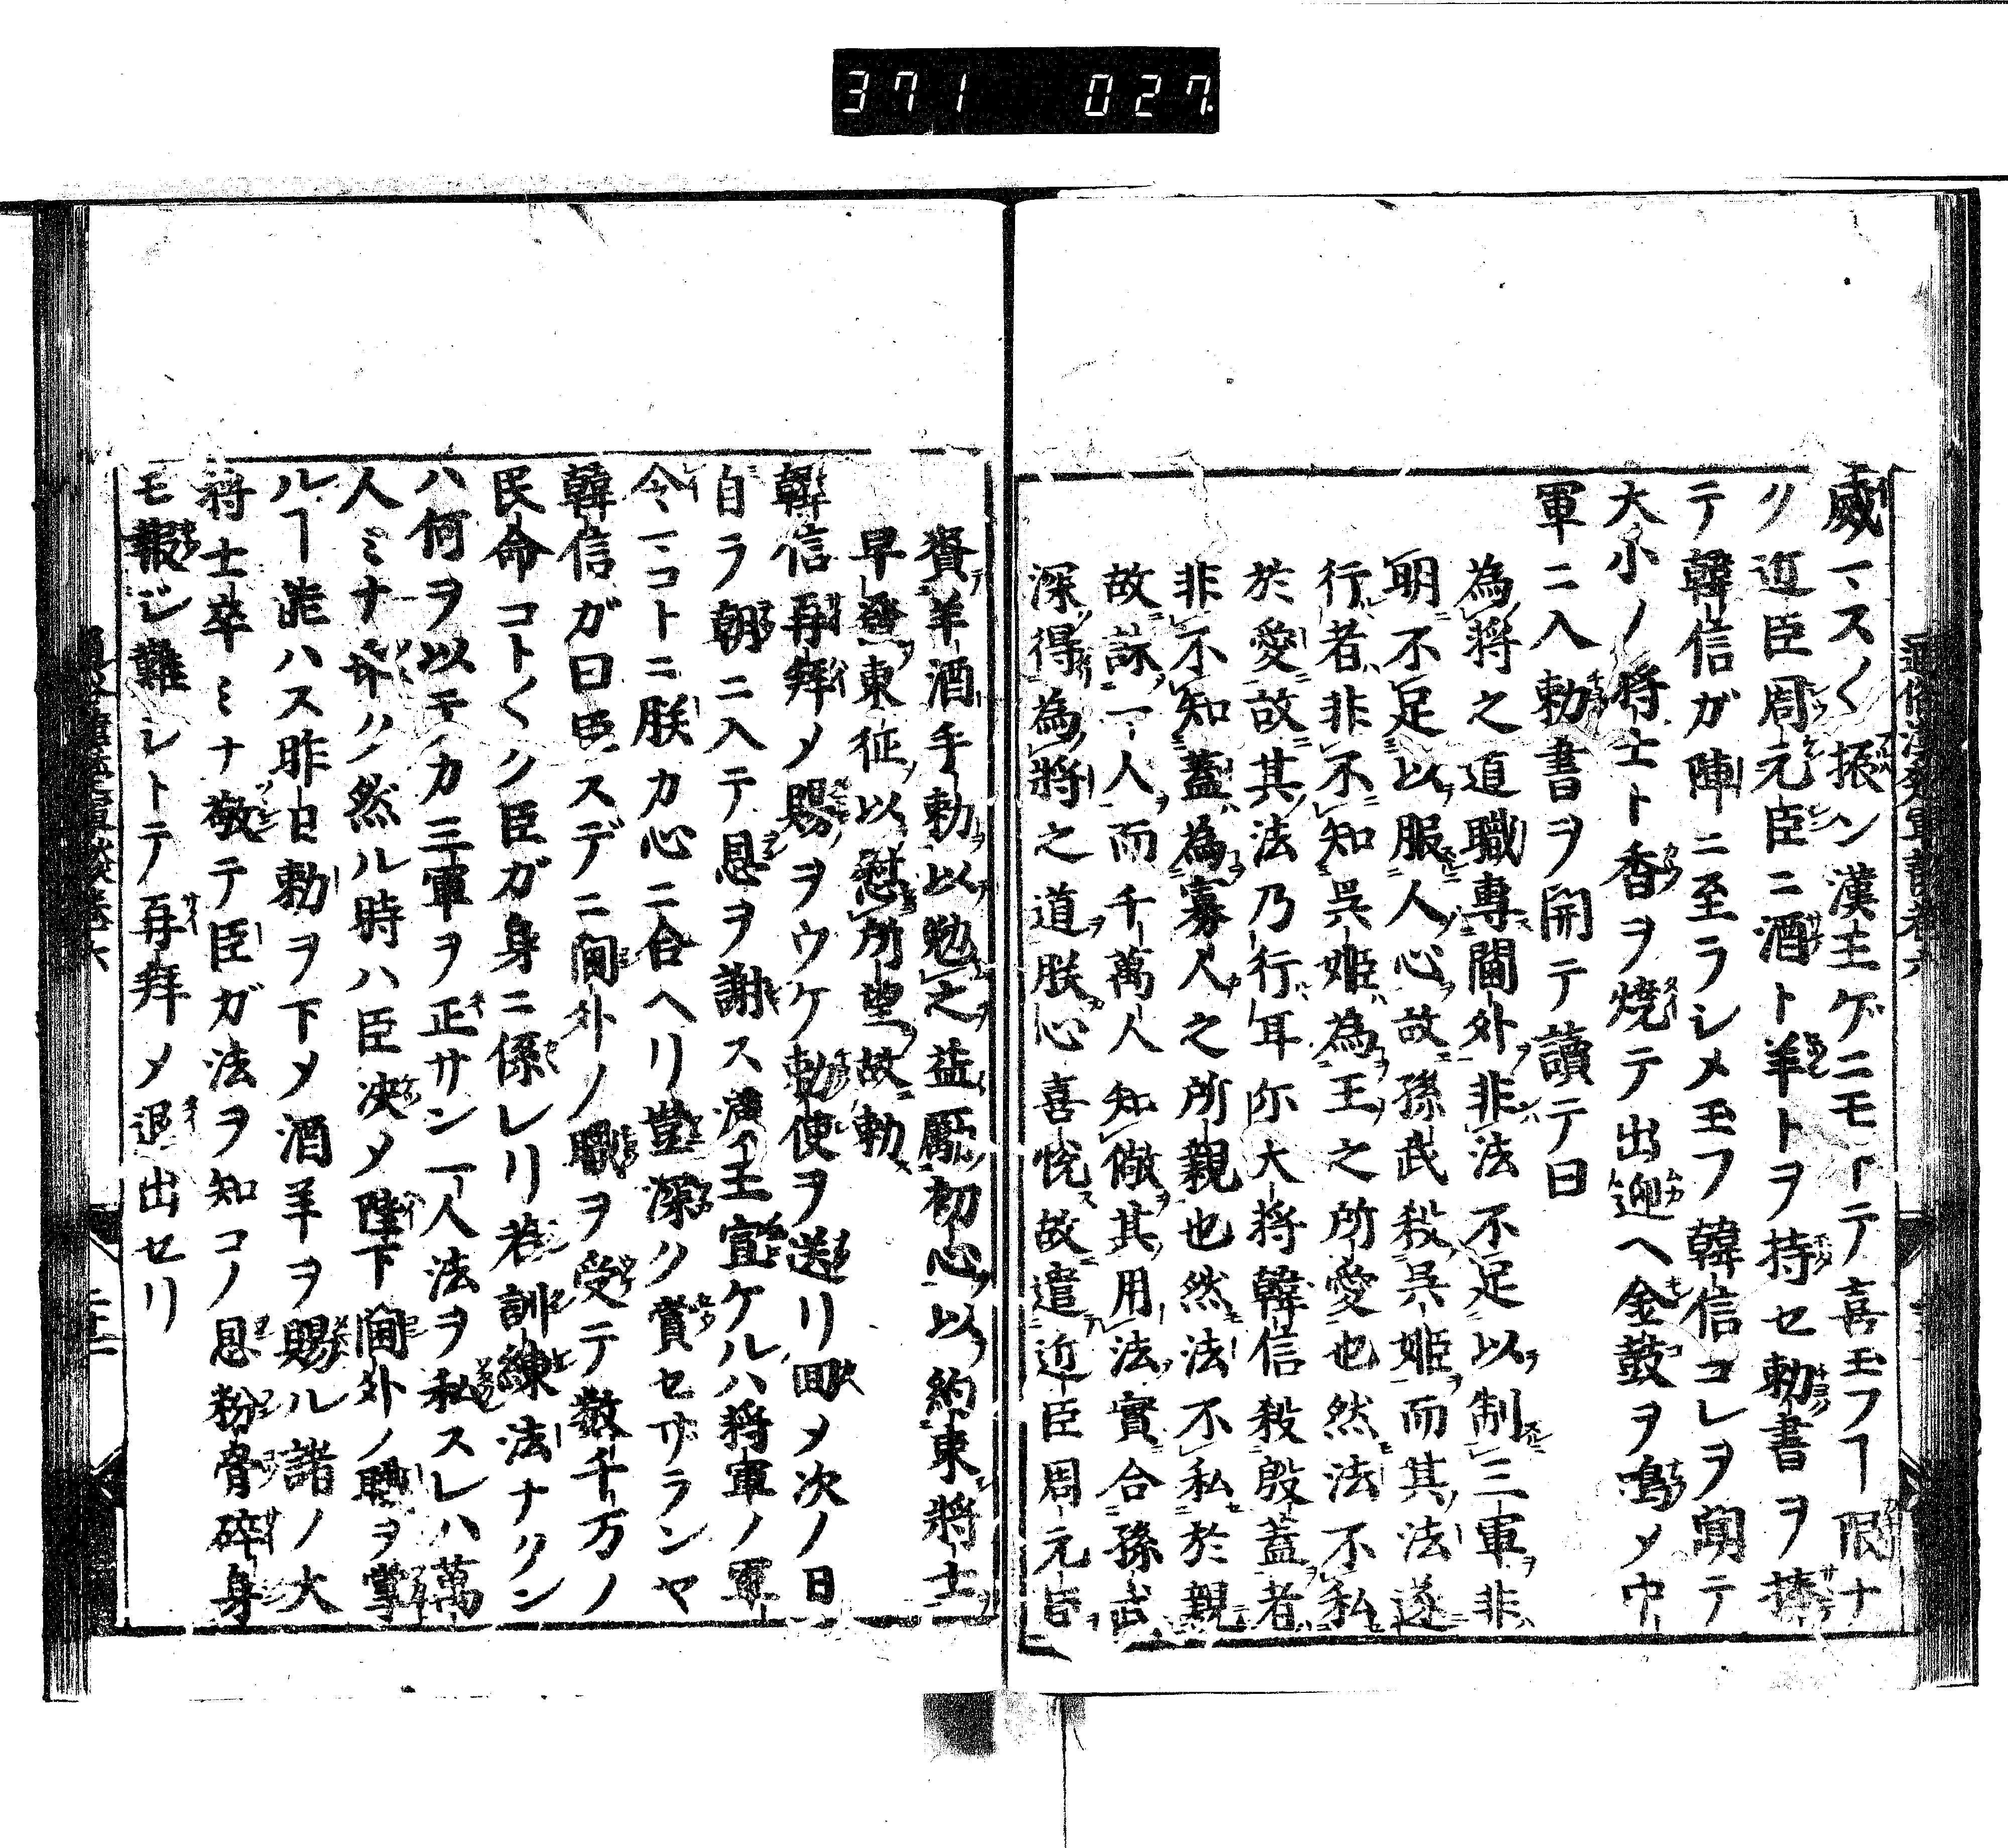 371 027
威マスく振ン漢王ゲニモトテ喜玉フヿ限ナ
ク近臣周元臣ニ酒ト羊トヲ持セ勅書ヲ捧
テ韓信ガ陣ニ至ラシメ玉フ韓信コレヲ聞テ
大小ノ将士ト香ヲ焼テ出迎ヘ金鼓ヲ鳴メ中
軍ニ入勅書ヲ開テ讀テ曰
為将之道職専閫外非法不足以制三軍非
明不足以服人心故孫武殺呉姫而其法遂
行者非不知呉姫為王之所愛也然法不私
於愛故其法乃行耳尓大将韓信殺殷蓋者
非不知蓋為寡人之所親也然法不私於親
故誅一人而千萬人知儆其用法實合孫武
深得為將之道朕心喜悦故遣近臣周元臣
賚羊酒手勅以勉之益勵初心以約束將士
早發東征以慰所望故勅
韓信再拜メ賜ヲウケ勅使ヲ送リ回メ次ノ日
自ラ朝ニ入テ恩ヲ謝ス漢王宣ケルハ将軍ノ軍
令マコトニ朕カ心ニ合ヘリ豈深ク賞セザランヤ
韓信ガ曰臣スデニ閫外ノ職ヲ受テ数千万ノ
民命コトくク臣ガ身ニ係レリ若訓練法ナクン
ハ何ヲ以テカ三軍ヲ正サン一人法ヲ私スレハ萬
人ミナ乖ク然ル時ハ臣决メ陛下閫外ノ職ヲ掌
ルヿ能ハス昨日勅ヲ下メ酒羊ヲ賜ル諸ノ大
将士卒ミナ敬テ臣ガ法ヲ知コノ恩粉骨砕身
モ報ジ難シトテ再拜メ退出セリ